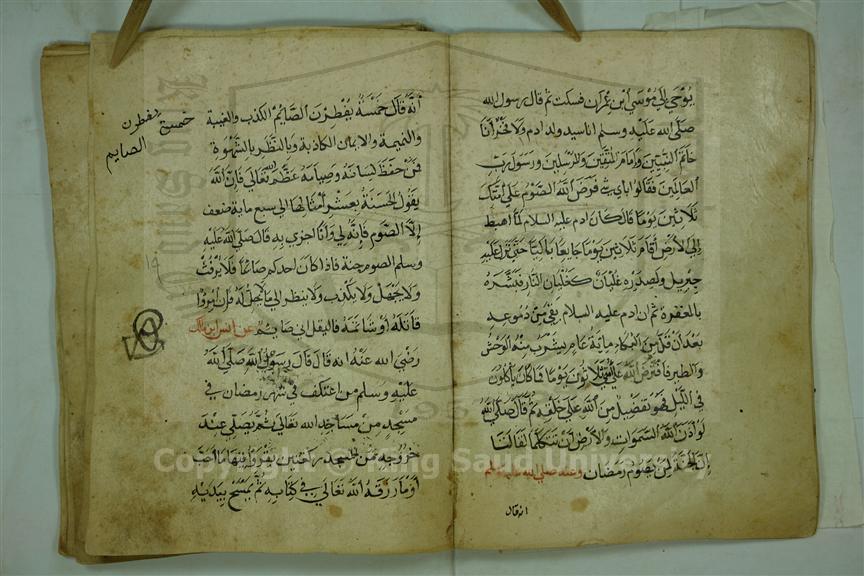 يوحي الي موسى ابن عمران فسكت ثم قال رسول الله
صلى الله عليه وسلم انا سيد ولد ادم ولا فخر انا
خاتم النبيين وامام المتقين والمرسلين ورسول رب
العالمين فقالوا باي فرض الله الصوم على امتك
ثلاثين يوما قال كان ادم عليه السلام لما اهبط
إلى الأرض اقام ثلاثين يوما جايعا باكيا حتى نزل عليه
جبريل ولصدره غليان كغليان النار فبشره
بالمغفرة ثم ان ادم عليه السلام بقي من دموعه
بعد ان البكاء ماية عام يشرب منه الوحش
والطير فافترض الله على ثلاثون يوما فما كان يأكلون
في الليل فهو تفضيل من الله على خلفه ثم قال صلى الله
لو أذن الله السموات والأرض أن تتكلما لقالتا
إن الجنة لمن يصوم رمضان وعنه صلى الله عليه وسلم
انه قال
أنه قال خمسة يفطرن الصايم الكذب والغيبة
والنميمة والايمان الكاذبة وبالنظر بالشهوة
فمن حفظ لسانه وصيامه عظم الله تعالى فان الله
يقول الحسنة بعشر أمثالها الي سبع ماية ضعف
إلا الصوم فإنه لي وأنا اجزي به قال صلى الله عليه
وسلم الصوم جنة فاذا كان احدكم صائما فلا يرفث
ولا يجهل ولا يكذب ولا ينظر الي ما يحل له فإن
قاتله أو شاتمه فاليقل اني صايم عن انس ابن مالك
رضي الله عنه انه قال قال رسول الله صلى الله
عليه وسلم من اعتكف في شهر رمضان في
مسجد من مساجد الله تعالى ثم يصلي عند
خروجه من المسجد ركعتين يقرؤا فيهما ما أحب
أو ما رزقه الله تعالى في كتابه ثم يمسح بيديه
خمسة
يفطرون
الصايم
Copyright © King Saud University